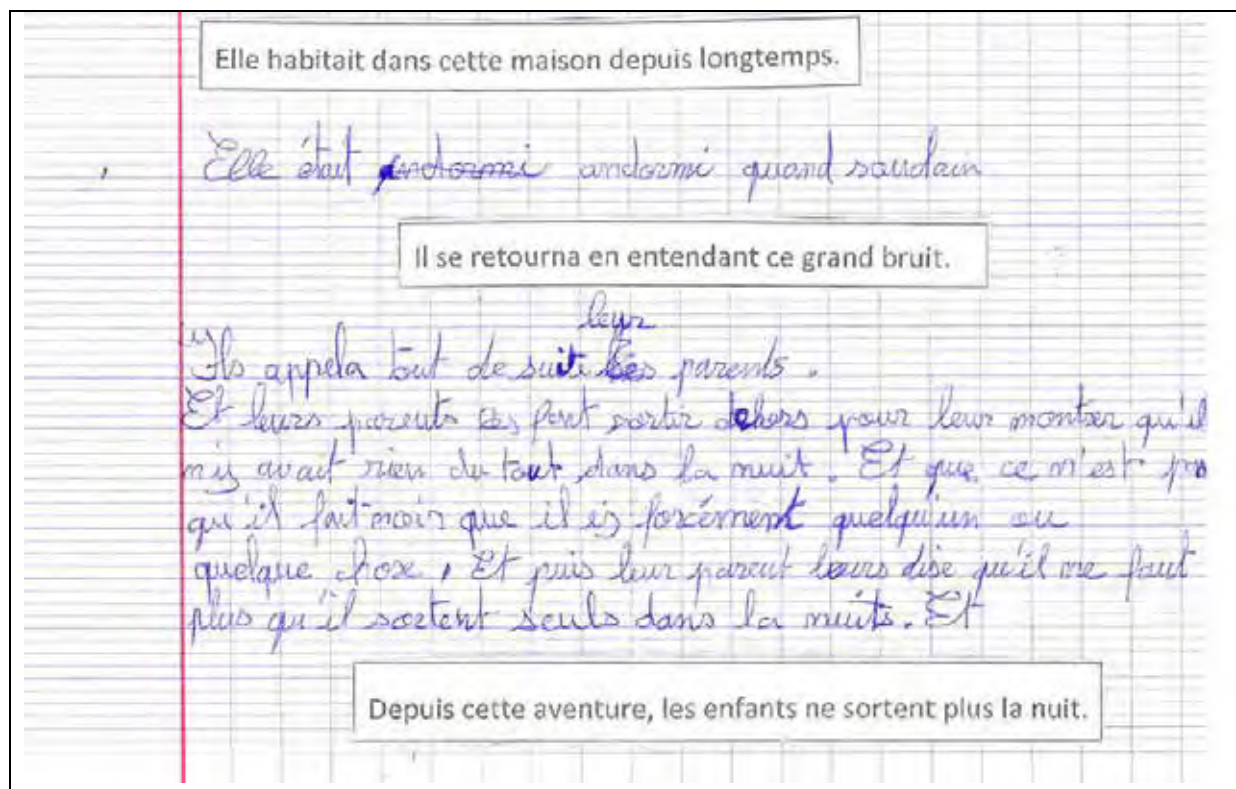 Elle habitait dans cette maison depuis longtemps.
Elle était andormi andormi quand soudain
Il se retourna en entendant ce grand bruit.
leur
Ils appela tout de suite parents.
Et leurs parents les font sortir dehors pour leur montrer qu'il
n'y avait rien du tout dans la nuit. Et que ce n'est pas
qu'il fait noir que il iy forcément quelqu'un ou
quelque chose, Et puis leur parent leurs dise qu'il ne faut
plus qu'il sortent seuls dans la nuits. Et
Depuis cette aventure, les enfants ne sortent plus la nuit.